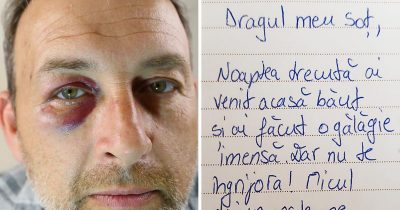 Dragul meu soț,
Noaptea trecută ai
venit acasă băut
și ai făcut o gălăgie
imensă Dar nu te
îngrijora! Micul